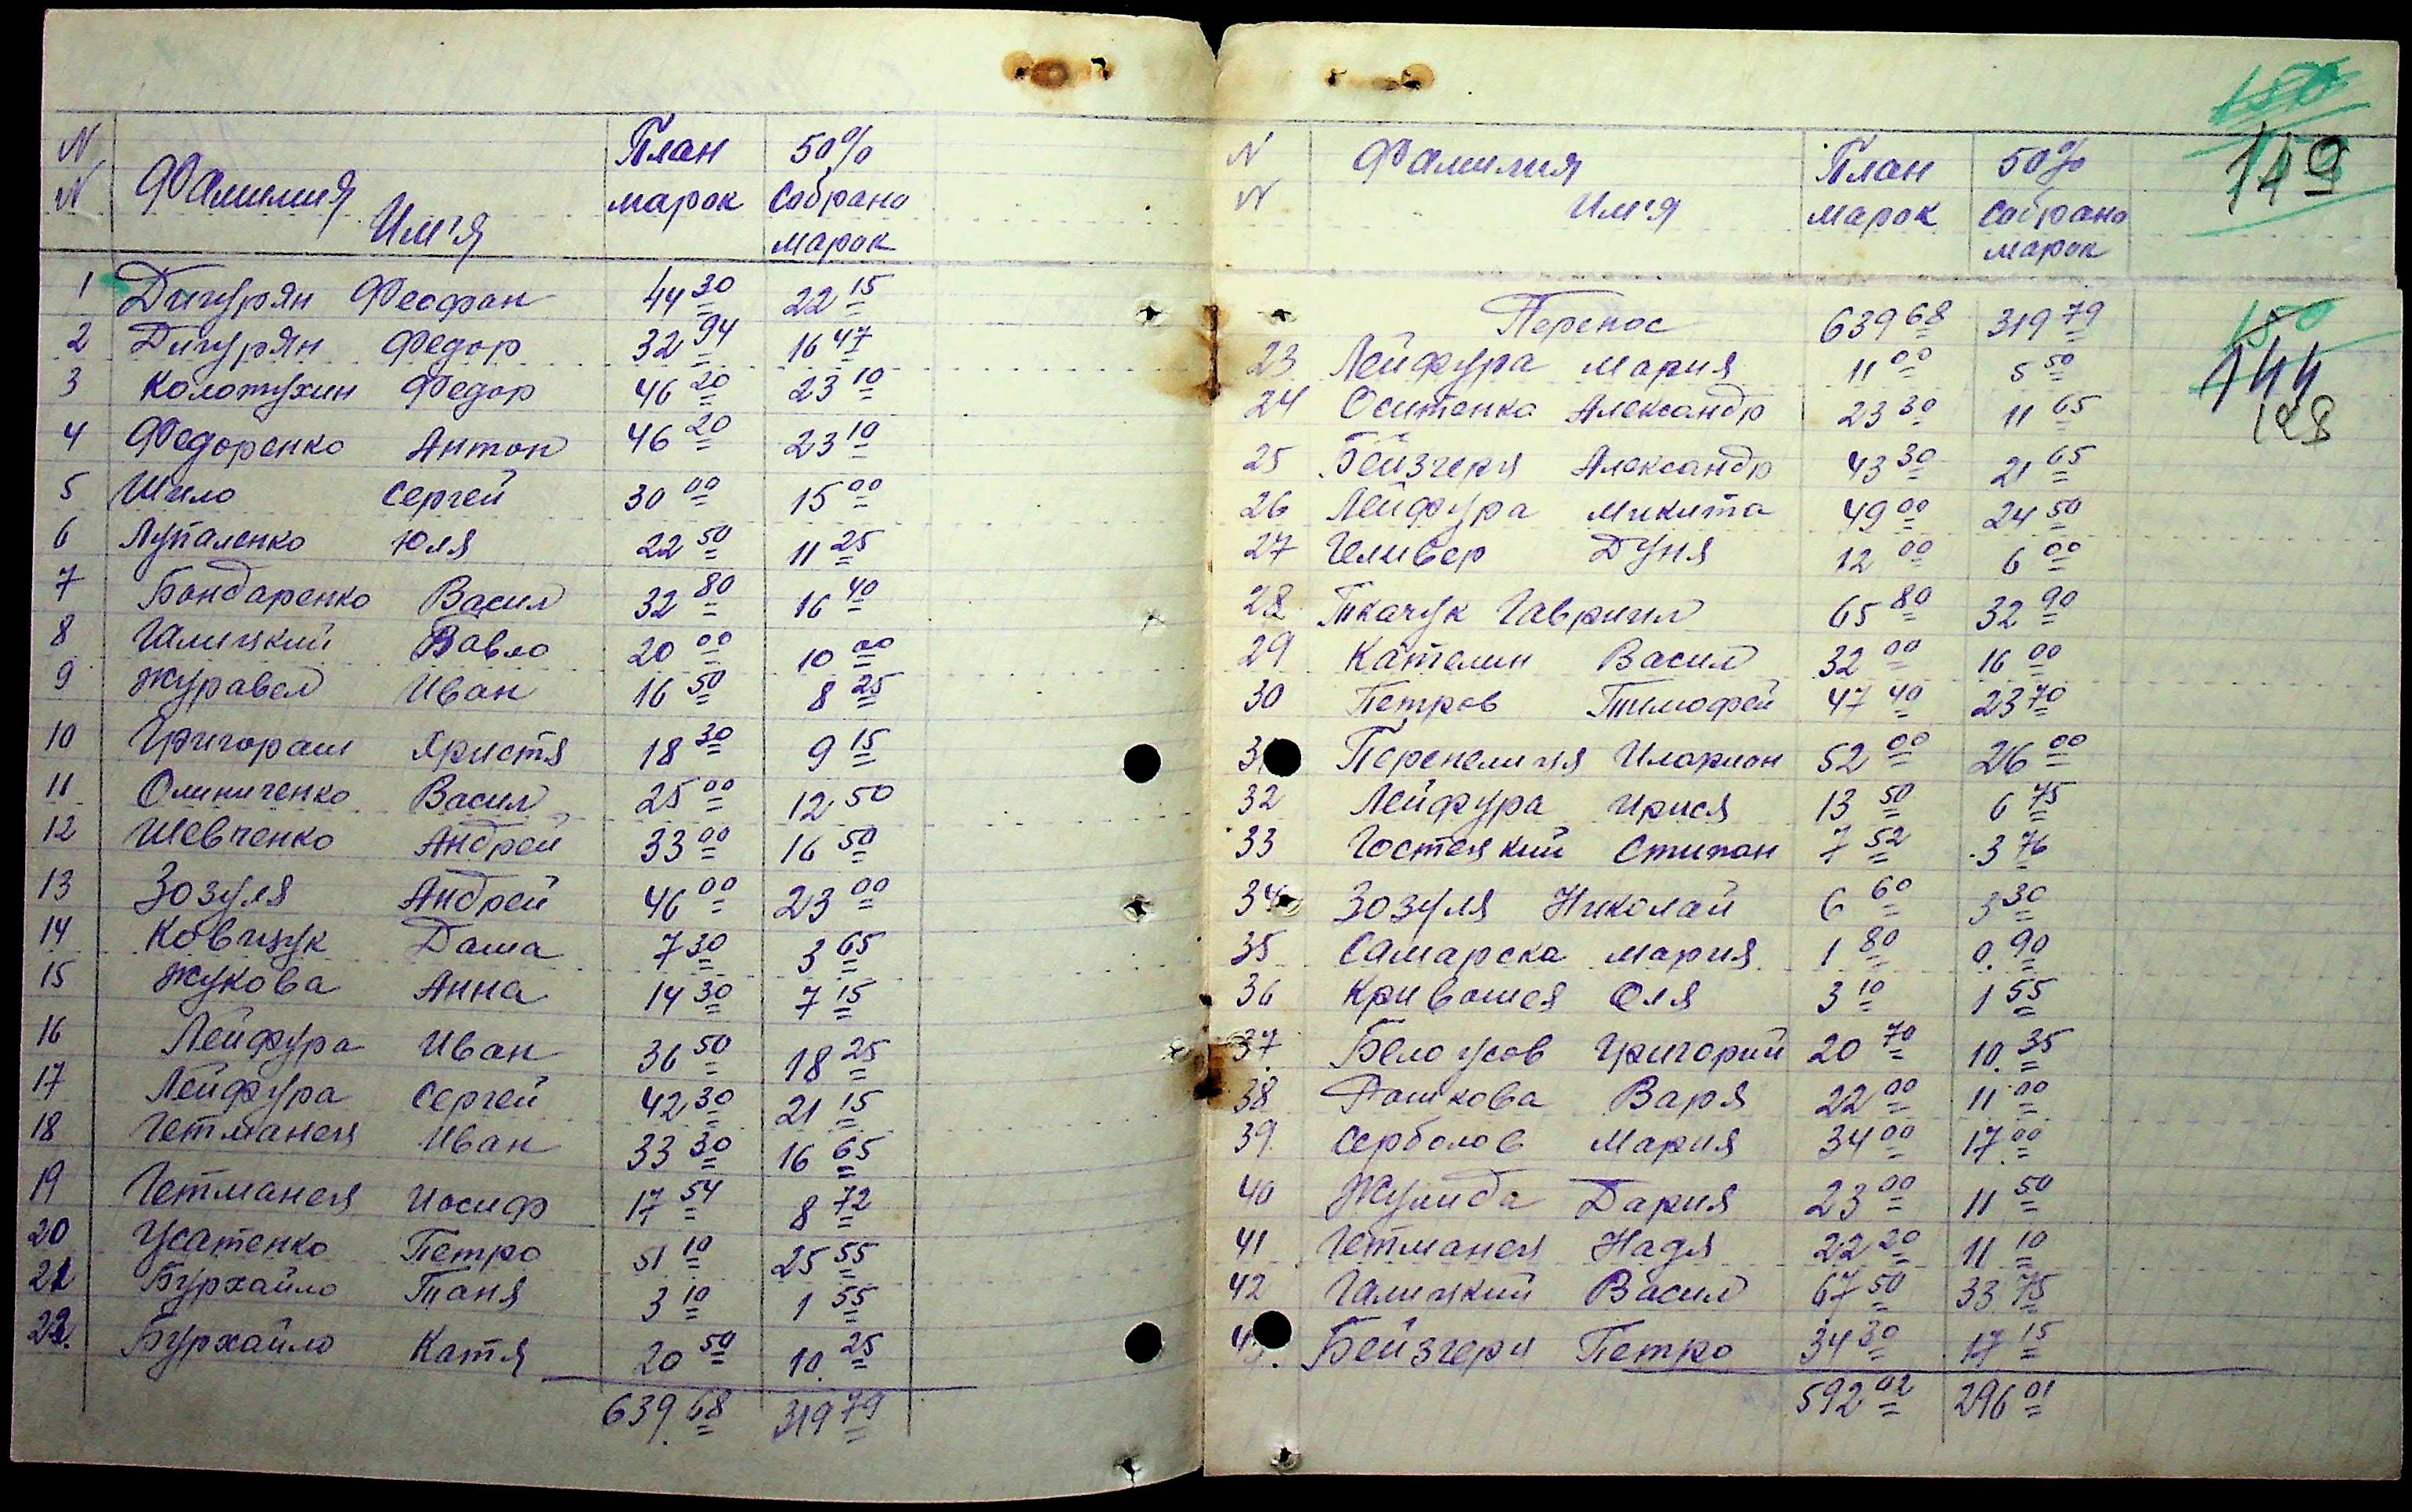 N Фамилия План 50%
N Им'я марок собрано
марок
1 Дигурян Феофан 44 30 22 15
2 Дигурян Федор 32 94 16 47
3 Колотухин Федор 46 20 23 10
4 Федоренко Антон 46 20 23 10
5 Шило Сергей 30 00 15 00
6 Лупаленко Юля 22 50 11 25
7 Бондаренко Васил 32 80 16 40
8 Галицкий Вовло 20 00 10 00
9 Журавел Иван 16 50 8 25
10 Григораш Христя 18 30 9 15
11 Олиниченко Васил 25 00 12 50
12 Шевченко Андрей 33 00 16 50
13 Зозуля Андрей 46 00 23 00
14 Ковщук Даша 7 30 3 65
15 Жукова Анна 14 30 7 15
16 Лейфура Иван 36 50 18 25
17 Лейфура Сергей 42 30 21 15
18 Гетманец Иван 33 30 16 65
19 Гетманец Иосиф 17 54 8 72
20 Усатенко Петро 51 10 25 55
21 Бурхайло Таня 3 10 1 55
22. Бурхайло Катя 20 50 10. 25
639. 68 319 79
150
149
N Фамилия План 50%
N Им'я марок собрано
марок
Перенос 639 68 319 79
150
144
128
23 Лейфура Мария 11 00 5 50
24 Оситенко Александр 23 30 11 65
25 Бейзчеря Александр 43 30 21 65
26 Лейфура Микита 49 00 24 50
27 Геливер Дуня 12 00 6 00
28 Ткачук Гавриил 65 80 32 90
29 Кателин Васил 32 00 16 00
30 Петров Тимофей 47 40 23 70
3 Перепелиця Иларион 52 00 26 00
32 Лейфура Ирися 13 50 6 75
33 Гостецкий Стипан 7 52 3 76
34 Зозуля Николай 6 60 3 30
35 Самарска Мария 1 80 0. 90
36 Кривошея Оля 3 10 1 55
37 Белоусов Григорий 20 70 10. 35
38 Пашкова Варя 22 00 11 00
39 Серболов Мария 34 00 17 00
40 Жулида Дария 23 00 11 50
41 Гетманец Надя 22 20 11 10
42 Галицкий Васил 67 50 33 75
43. Бейзчеря Петро 34 30 17 15
592 02 296 01